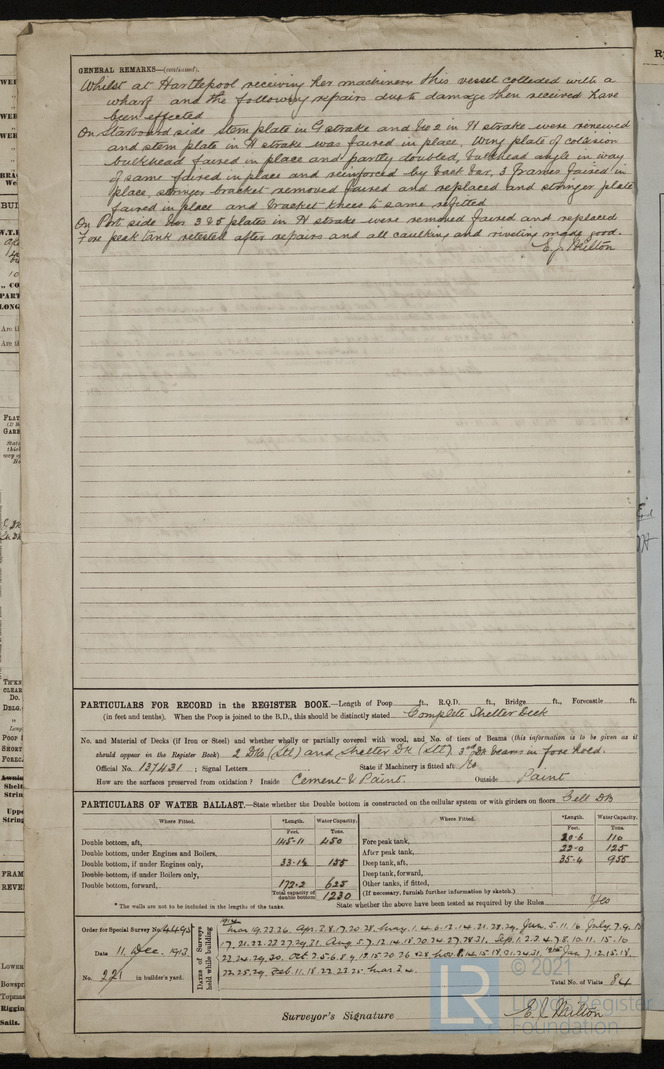 GENERAL REMARKS—(continued).
Whilst at Hartlepool receiving her machinery this vessel collided with a
wharf and the following repairs due to damage then received have
been effected
On Starboard side stem plate in G strake and No 2 in H strake were renewed
and stem plate in H strake was faired in place, Wing plate of collision
bulkhead faired in place and partly doubled, bulkhead angle in way
of same faired in place and reinforced by back bar, 3 frames faired in
place, stringer bracket removed faired and replaced and stringer plate
faired in place and bracket knees to same refitted
On Port side Nos 3 & 5 plates in H strake were removed faired and replaced
Fore peak tank retested after repairs and all caulking and riveting made good.
E. J. Milton
PARTICULARS FOR RECORD in the REGISTER BOOK.—Length of Poop ft., R.Q.D. ft., Bridge ft., Forecastle ft.
(in feet and tenths). When the Poop is joined to the B.D., this should be distinctly stated Complete Shelter Deck
No. and Material of Decks (if Iron or Steel) and whether wholly or partially covered with wood, and No. of tiers of Beams (this information is to be given as it
should appear in the Register Book) 2 Dks (Stl) and Shelter Dk (Stl) 3rd Dk beams in fore hold.
Official No. 137431 ; Signal Letters State if Machinery is fitted aft No
How are the surfaces preserved from oxidation? Inside Cement & Paint. Outside Paint
PARTICULARS OF WATER BALLAST.—State whether the Double bottom is constructed on the cellular system or with girders on floors Cell DB
Where Fitted. *Length. Water Capacity. Where Fitted. *Length. Water Capacity.
Feet. Tons. Feet. Tons.
Double bottom, aft, 145-11 450 Fore peak tank, 20-6 110
Double bottom, under Engines and Boilers, After peak tank, 22-0 125
Double bottom, if under Engines only, 33-1½ 155 Deep tank, aft, 35-4 955
Double bottom, if under Boilers only, Deep tank, forward,
Double bottom, forward, 172-2 625 Other tanks, if fitted,
Total capacity of double bottom 1230 (If necessary, furnish further information by sketch.)
* The wells are not to be included in the lengths of the tanks. State whether the above have been tested as required by the Rules Yes
Order for Special Survey No. 4495
Date 11. Dec. 1913
No. 221 in builder's yard.
Dates of Surveys held while building
1914
Mar 19.23.26. Apr. 2.8.17.20.28. May. 1.4.6.12.14.21.28.29. Jun. 5.11.16 July. 7.9.
17.21.22.23.27.29.31. Aug 5.7.12.14.18.20.24.27.28.31. Sep. 1.2.3.4.7.8.10.11.15.16
22.24.29.30. Oct 2.5.6.8.9.13.15.20.26.28 Nov. 14.15.18.21.24.31. 1915 Jan 7.12.15.18.
22.25.29. Feb. 11.18.22.23.25. Mar 3.4.
Total No. of Visits 84
Surveyor's Signature E. J. Milton
LR
© 2021
Lloyd's Register
Foundation